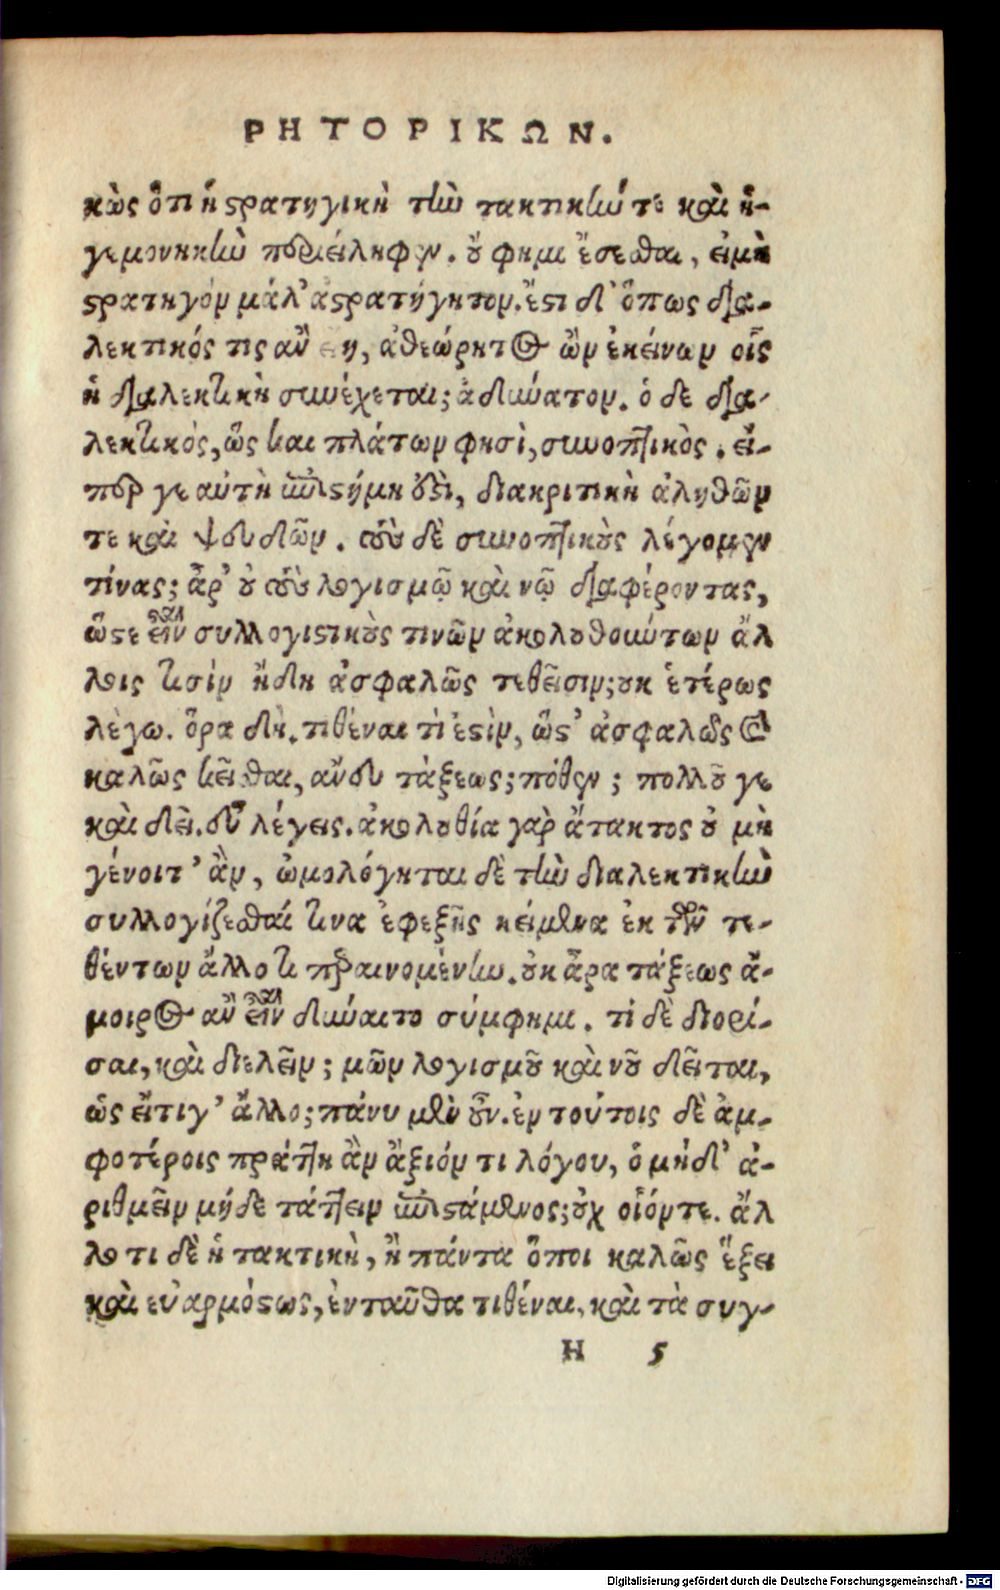 ΡΗΤΟΡΙΚΩΝ.
κὼς ὅτι ἡ στρατηγικὴ τὴν τακτικήν τε καὶ ἡ-
γεμονηκὴν περιείληφεν. οὔ φημι ἔσεσθαι, εἰμὴ
στρατηγόν μάλ' ἀστρατήγητον. ἔστι δ' ὅπως δια-
λεκτικός τις ἂν εἴη, ἀθεώρητος ὢν ἐκείνων οἷς
ἡ διαλεκτικὴ συνέχεται; ἀδύνατον. ὁ δὲ δια-
λεκτικός, ὥς και πλάτων φησὶ, συνοπτικὸς. εἴ-
περ γε αὐτὴ ἐπιστήμη ὅστὶ, διακριτικὴ ἀληθῶν
τε καὶ ψευδῶν. τοὺς δὲ συνοπτικοὺς λέγομεν
τίνας; ἆρ' οὐ τοὺς λογισμῷ καὶ νῷ διαφέροντας,
ὥστε εἶναι συλλογιστικοὺς τινῶν ἀκολουθούντων ἄλ
λοις τισὶν ἤδη ἀσφαλῶς τεθεῖσιν; οὐκ ἑτέρως
λέγω. ὅρα δὴ. τιθέναι τὶ ἐστὶν, ὥστ' ἀσφαλῶς καὶ
καλῶς κεῖσθαι, ἄνευ τάξεως; πόθεν; πολλοῦ γε
καὶ δεῖ. εὖ λέγεις. ἀκολουθία γὰρ ἄτακτος οὐ μὴ
γένοιτ' ἂν, ὡμολόγηται δὲ τὴν διαλεκτικὴν
συλλογίζεσθαί τινα ἐφεξῆς κείμενα ἐκ τῶν τε-
θέντων ἄλλο τι περαινομένην. οὐκ ἄρα τάξεως ἄ-
μοιρος ἂν εἶναι δύναιτο σύμφημι. τί δὲ διορί-
σαι, καὶ διελεῖν; μῶν λογισμοῦ καὶ νοῦ δεῖται,
ὡς εἴτιγ' ἄλλο; πάνυ μὲν οὖν. ἐν τούτοις δὲ ἀμ-
φοτέροις πράττῃ ἂν ἄξιόν τι λόγου, ὁ μήδ' ἀ-
ριθμεῖν μήδε τάττειν ἐπιστάμενος; οὐχ οἷόντε. ἄλ
λο τι δὲ ἡ τακτικὴ, ἢ πάντα ὅποι καλῶς ἕξει
καὶ εὐαρμόστως, ἐνταῦθα τιθέναι, καὶ τὰ συγ-
H 5
Digitalisierung gefördert durch die Deutsche Forschungsgemeinschaft - DFG